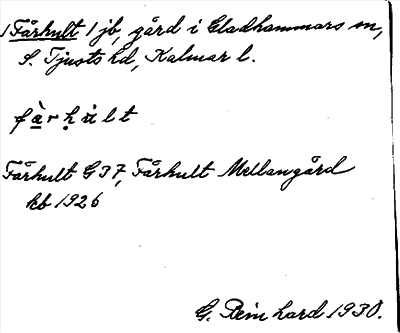 1 Fårhult 1 jb, gård i Gladhammars sn,
S. Tjusts hd, Kalmar l.
fàrhùlt
Fårhult G 37, Fårhult Mellangård
kb 1926
G. Reinhard 1930.